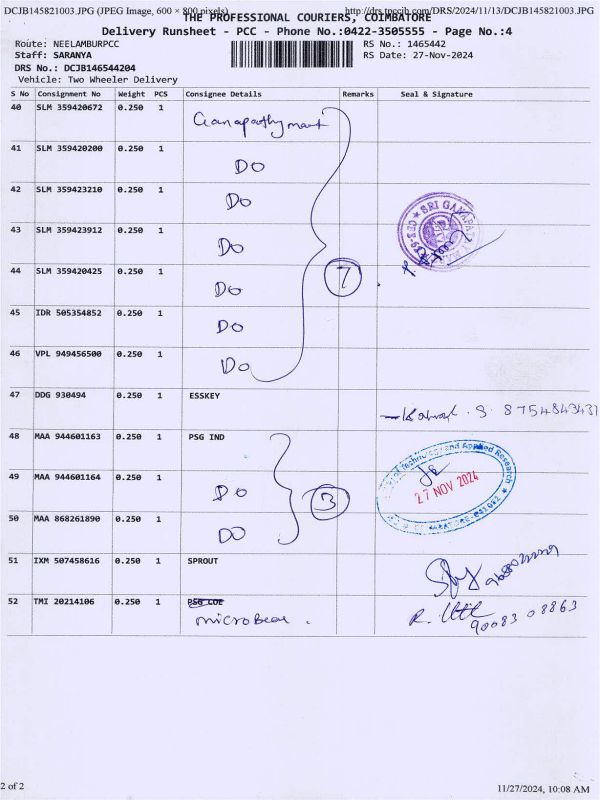 DCJB145821003.JPG (JPEG Image, 600 × 800 pixels)
http://drs.tpccjb.com/DRS/2024/11/13/DCJB145821003.JPG
THE PROFESSIONAL COURIERS, COIMBATORE
Delivery Runsheet - PCC - Phone No.:0422-3505555 - Page No.:4
Route: NEELAMBURPCC RS No.: 1465442
Staff: SARANYA RS Date: 27-Nov-2024
DRS No.: DCJB146544204
Vehicle: Two Wheeler Delivery
S No Consignment No Weight PCS Consignee Details Remarks Seal & Signature
40 SLM 359420672 0.250 1 Ganapathy
41 SLM 359420200 0.250 1 DO
42 SLM 359423210 0.250 1 DO
SRI GANAPATHY
43 SLM 359423912 0.250 1 DO
44 SLM 359420425 0.250 1 DO 7
45 IDR 505354852 0.250 1 DO
46 VPL 949456500 0.250 1 DO
47 DDG 930494 0.250 1 ESSKEY
S. 8754843431
48 MAA 944601163 0.250 1 PSG IND
and Applied Research
49 MAA 944601164 0.250 1 DO 3 27 NOV 2024
50 MAA 868261890 0.250 1 DO
51 IXM 507458616 0.250 1 SPROUT
52 TMI 20214106 0.250 1 PSG COE
microbear. R. 90083 08863
2 of 2 11/27/2024, 10:08 AM